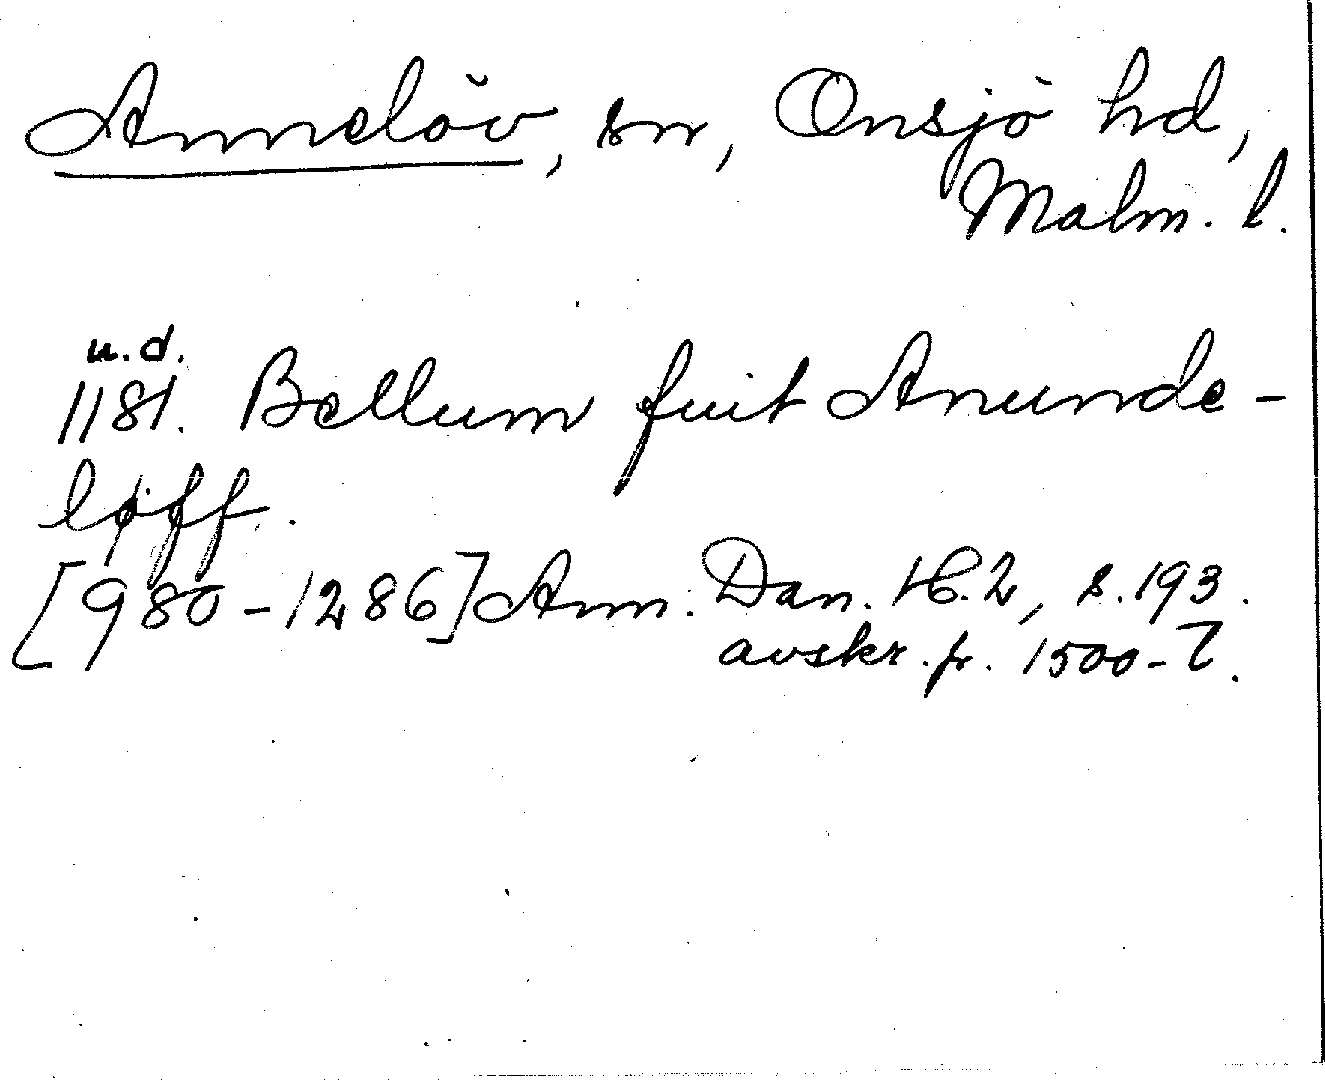 Annelöv, sn, Onsjö hd,
Malm. l.
u.d.
1181. Bellum fuit Anunde-
løff.
[980-1286] Ann. Dan. H. 2, s. 193.
avskr. fr. 1500-t.